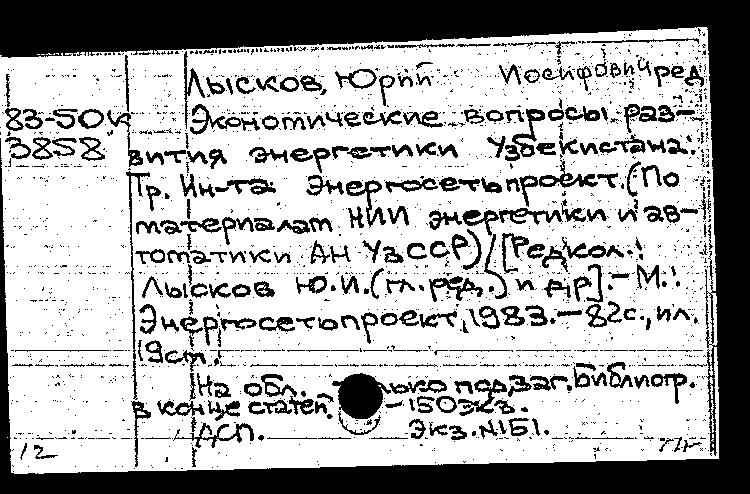 Лысков, Юрий Иосифович ред
83-50к Экономические вопросы раз-
3858 вития энергетики Узбекистана:
Тр. Ин-та Энергосетьпроект. (По
материалам НИИ энергетики и ав-
томатики АН УзССР)/[Редкол.:
Лысков Ю.И. (гл. ред.) и др]. – М.:
Энергосетьпроект, 1983. – 82с., ил.
19см.
На обл. только подзаг. Библиогр.
в конце статей. – 150экз.
ДСП. Экз. №151.
12